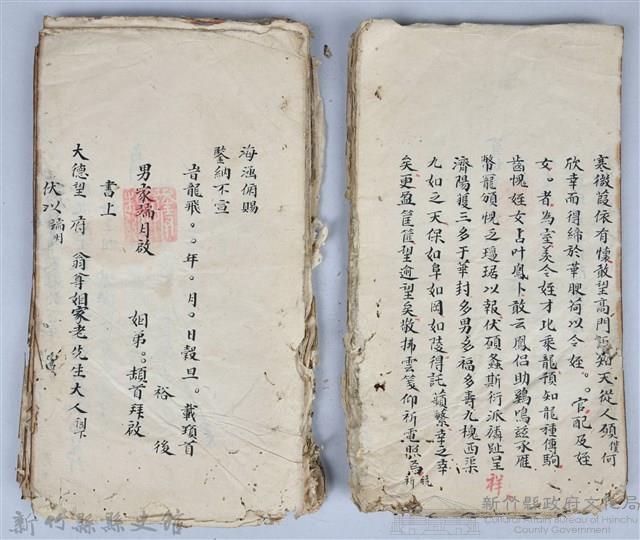 襄微葭依有懷敢望高門詎知天從人願僕何
欣幸而得締於華腴荷以令姪。。官配及姪
女。者為室羨令姪才比乘龍預知龍種傳駒
齒愧姪女占叶鳳卜敢云鳳侶助鷄鳴茲承雁
幣寵頒愧乏瓊琚以報伏碩螽斯衍派麟趾呈祥
濟陽護三多于華封多男多福多壽九槐西渠
九如之天保如阜如岡如陵得託蘋蘩幸之幸
矣更盈筐筐望逾望矣敬拂雲箋仰祈電照為
海涵俯賜
鑒納不宣
旹龍飛。。年。月。日穀旦。載頊首
裕後
男家端月啟 姻弟。。頓首拜啟
書上
大德望 府 翁尊姻家老先生大人
伏以 端月
新竹縣縣史館
新竹縣政府文化局
Cultural Affairs Bureau of Hsinchu
County Government